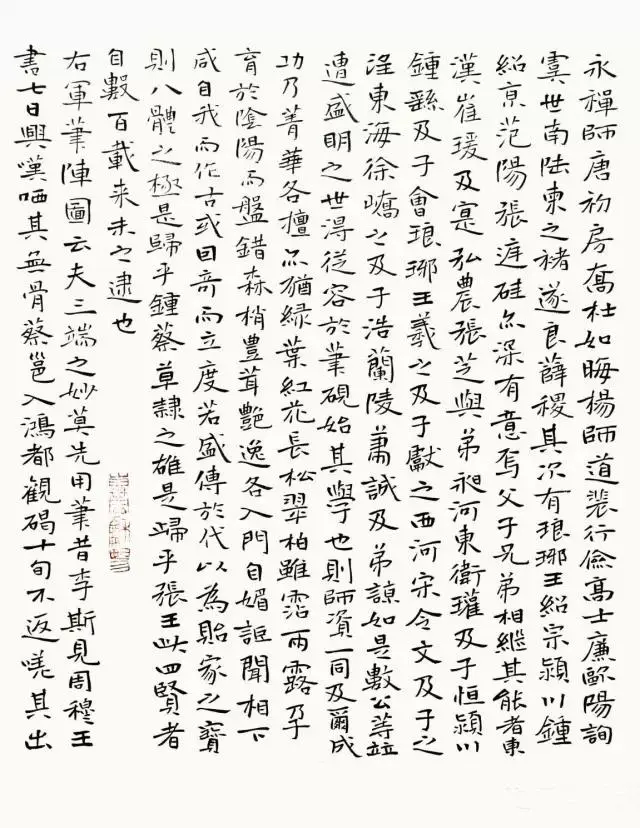 永禪師唐初房喬杜如晦楊師道裴行儉高士廉歐陽詢
虞世南陸柬之褚遂良薛稷其次有琅琊王紹宗潁川鍾
紹京范陽張庭硅亦深有意焉父子兄弟相繼其能者東
漢崔瑗及寔弘農張芝與弟昶河東衛瓘及子恒潁川
鍾繇及子會琅琊王羲之及子獻之西河宋令文及子之
遜東海徐嶠之及子浩蘭陵蕭誠及弟諒如是數公等並
遭盛明之世得從容於筆硯始其學也則師資一同及爾成
功乃菁華各擅亦猶綠葉紅花長松翠柏雖沾雨露孕
育於陰陽而盤錯森梢豐茸艷逸各入門自媚詎聞相下
咸自我而作古或因奇而立度若盛傳於代以為貽家之寶
則八體之極是歸乎鍾蔡草隸之雄是歸乎張王此四賢者
自數百載来未之逮也
右軍筆陣圖云夫三端之妙莫先用筆昔李斯見周穆王
書七日興嘆哂其無骨蔡邕入鴻都觀碣十旬不返嗟其出